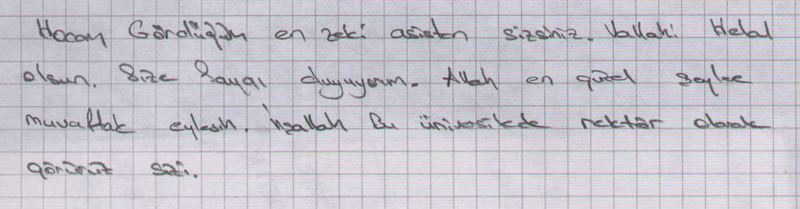 Hocam Gördüğüm en zeki asistan sizsiniz. Vallahi Helal
olsun. Size Saygı duyuyorum. Allah en güzel şeylere
muvaffak eylesin. İnşallah Bu üniversitede rektör olarak
görürüz sizi.